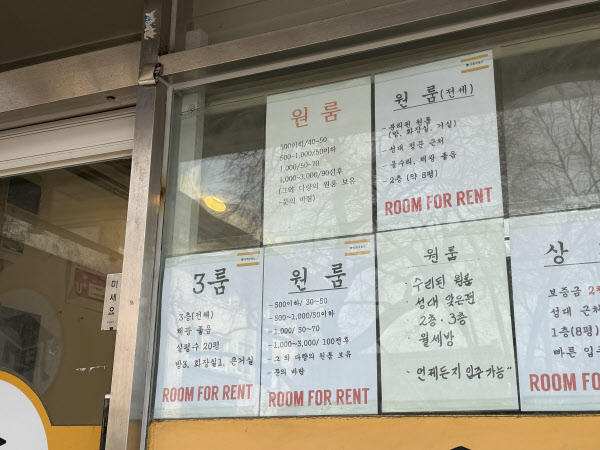 원 룸
500이하/40~50
500~1,000/50이하
1,000/50~70
1,000~3,000/90전후
(그외 다량의 원룸 보유
-문의 바람)
원 룸(전세)
-분리된 원룸
(방, 화장실, 거실)
-성대 정문 근처
-올수리, 채광 좋음
-2층 (약 8평)
ROOM FOR RENT
3룸
3층(전체)
채광 좋음
실평수 20평
방3, 화장실1, 큰거실
ROOM FOR RENT
원 룸
-500이하/ 30~50
-500~1,000/50이하
-1,000/ 50~70
-1,000~3,000/ 100전후
-그 외 다량의 원룸 보유
-문의 바람
ROOM FOR RENT
원룸
· 수리된 원룸
· 성대
2층·3층
· 월세방
· 언제든지 입주가능"
상
보증금 2
성대 근처
1층(8평)
빠른 입주
ROOM FOR
미세요